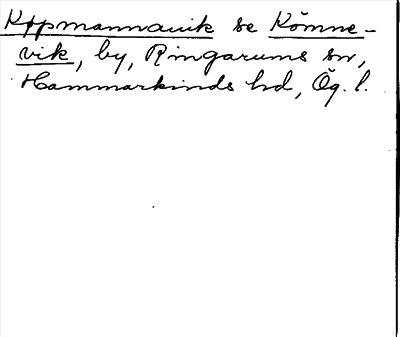 Kppmannauik se Kömne-
vik, by, Ringarums sn,
Hammarkinds hd, Ög. l.